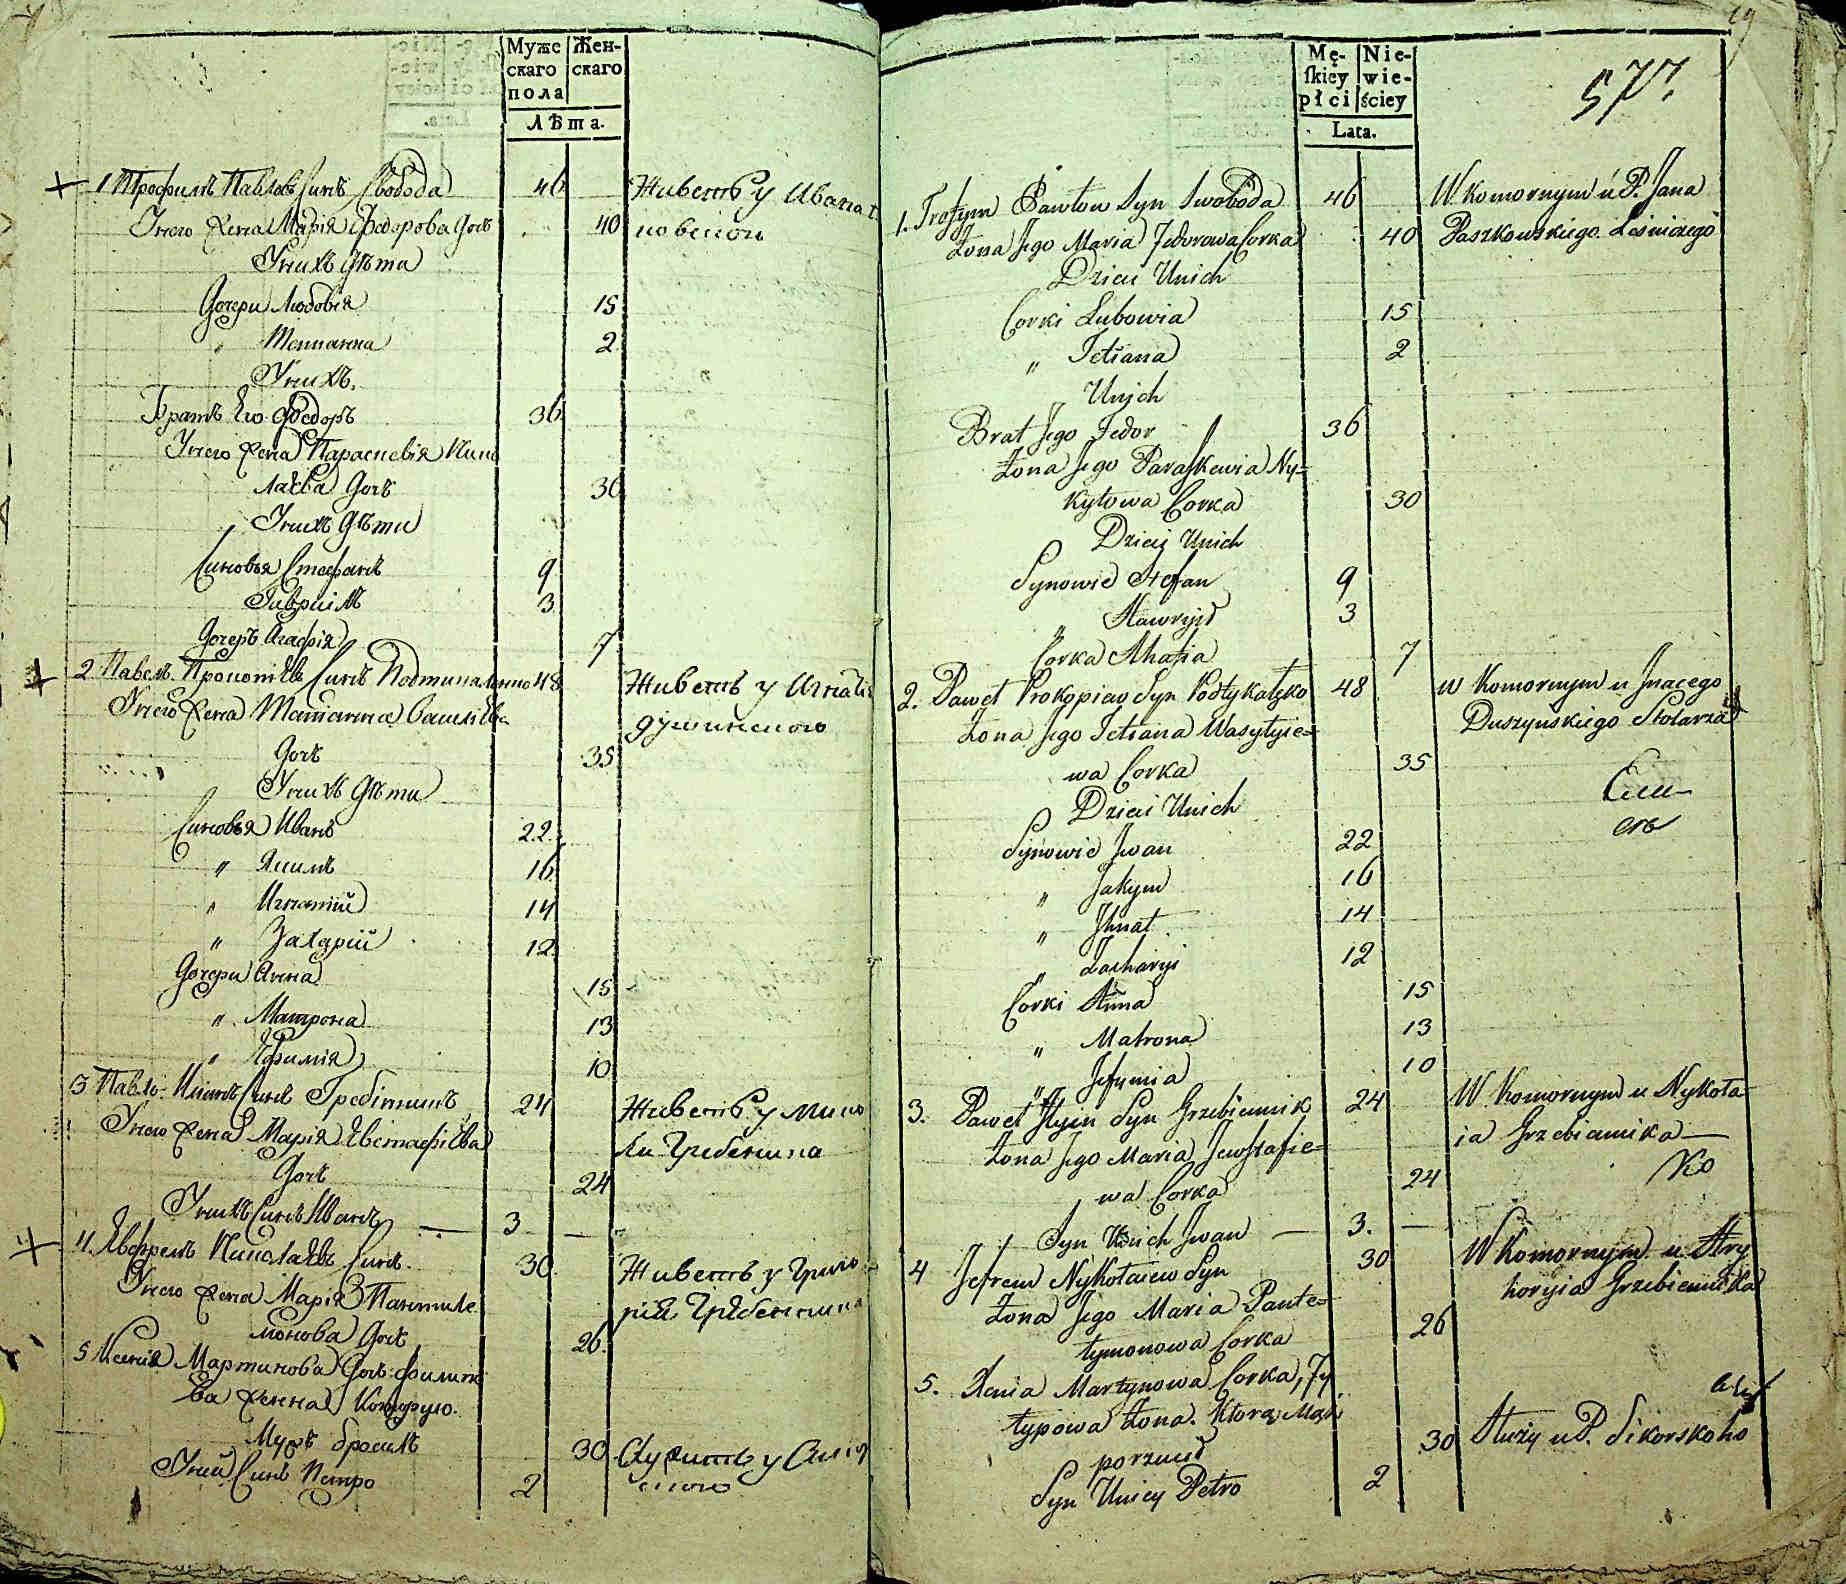 Муже
скаго
пола
Жен-
скаго
Лѣта.
1 Трофимъ Павловъ Синъ Свобода 46 Живетъ у Ивана
Унего жена Марія Федорова Дочь 40
Унихъ Дѣти
Дочери Любовія 15
" Тетіанна 2
Унихъ.
Братъ Его Федоръ 36
Унего жена Параскевія Нико
лаева Дочь 30
Унихъ Дѣти
Синовья Стефанъ 9
Гавриїлъ 3
Дочеръ Агафія 7
2 Павелъ Прокопіевъ Синъ 48 Живетъ у Игнатія
Унего жена Татіанна Василіева душинского
Дочь 35
Унихъ Дѣти
Синовья Иванъ 22
" Якимъ 16
" Игнатій 14
" Захарій 12
Дочери Анна 15
" Матрона 13
" Ефимія 10
3 Павло Илинъ Синъ Гребіникъ 24 Живетъ у Нико
Унего жена Марія Евстафіева ли Гребеника
Дочь 24
Унихъ Синъ Иванъ — 3 —
4. Евфремъ Николаевъ Синъ. 30 Живетъ у Григо
Унего жена Марія Пантиле рія Гребенника
монова Дочь 26.
5 Ксенія Мартинова Дочь филипо
ва жена Которую.
Мужъ бросилъ 30 Служитъ у
Уней Синъ Петро 2
19
577.
Mę-
skiey
płci
Nie-
wie-
ściey
Lata.
1. Trofym Pawłow Syn Swoboda 46 W Komornym u P. Jana
Żona Jego Maria Fedorowa Corka 40 Paszkowskiego Leśniczego
Dzieci Unich
Corki Lubowia 15
" Tetiana 2
Unich
Brat Jego Fedor 36
Żona Jego Paraskewia Ny-
kyłowa Corka 30
Dzieci Unich
Synowie Stefan 9
" Hawryił 3
Corka Ahafia 7
2. Paweł Prokopiew Syn Podtykałko 48 W Komornym u Jnacego
Żona Jego Tetiana Wasylyie= Duszyńskiego Stolarza
wa Corka 35
Dzieci Unich
Synowie Jwan 22
" Jakym 16
" Jhnat 14
" Zacharyi 12
Corki Anna 15
" Matrona 13
" Jefymia 10
3. Paweł Jlyin Syn Grzebiennik 24 W Komornym u Nykoła-
Żona Jego Maria Jewstafie= ia Grzebiennika —
wa Corka 24
Syn Unich Jwan — 3. —
4 Jefrem Nykołaiew Syn 30 W Komornym u Hry
Żona Jego Maria Pante= horyia Grzebiennika
łymonowa Corka 26
5. Xenia Martynowa Corka, Fy
łypowa Żona. Ktorą Mąż 30 Służy u P. Sikorskoho
porzucił
Syn Uniey Petro 2